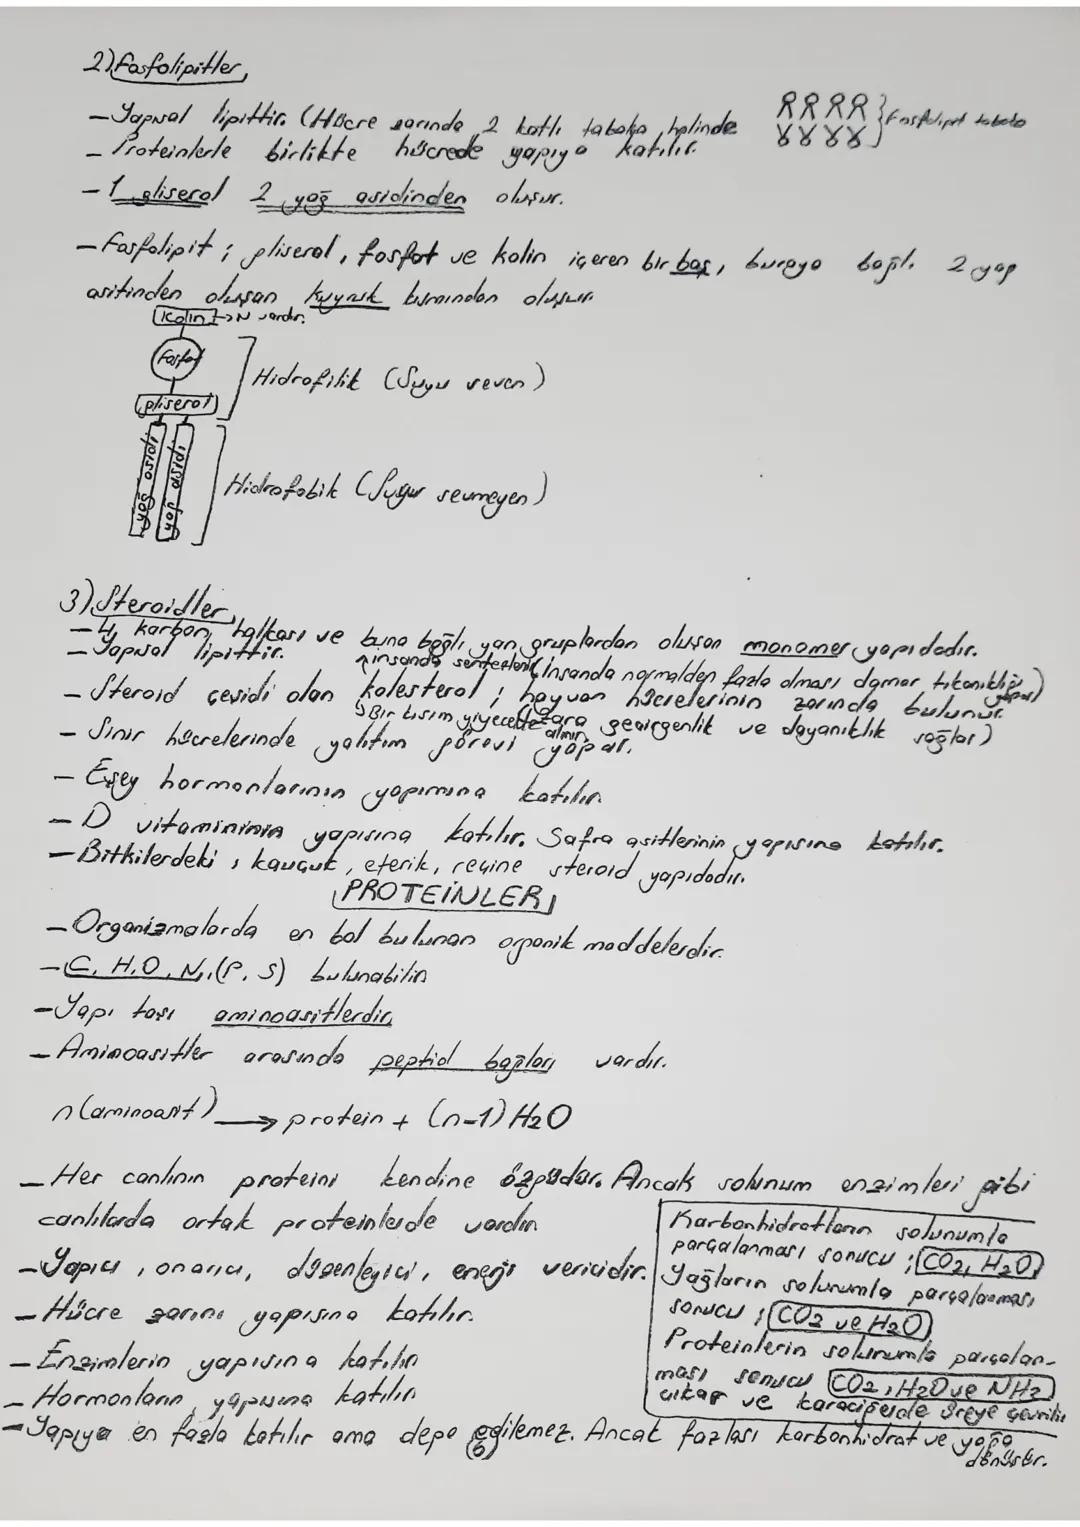 2) Fosfolipitler
-Yapısal lipittir. (Hücre zarında 2 katlı tabaka halinde
Fosfolipit tabaka
- Proteinlerle birlikte hücrede yapıya katılır.
- 1 gliserol 2 yağ asidinden oluşur.
- Fosfolipit ; gliserol, fosfat ve kolin içeren bir baş, buraya bağlı 2 yağ
asitinden oluşan kuyruk kısmından oluşur.
Kolin → N vardır.
Fosfat
gliserol
Hidrofilik (Suyu seven)
yağ asidi
yağ asidi
Hidrofobik (Suyu sevmeyen)
3) Steroidler
- 4 karbon halkası ve buna bağlı yan gruplardan oluşan monomer yapıdadır.
- Yapısal lipittir.
insanda sentezlenir (İnsanda normalden fazla olması damar tıkanıklığı yapar)
- Steroid çeşidi olan kolesterol ; hayvan hücrelerinin zarında bulunur.
Bir kısım yiyecekle alınır (Zara geçirgenlik ve dayanıklılık sağlar)
- Sinir hücrelerinde yalıtım görevi yapar.
- Eşey hormonlarının yapımına katılır.
- D vitamininin yapısına katılır. Safra asitlerinin yapısına katılır.
- Bitkilerdeki ; kauçuk, eterik, reçine steroid yapıdadır.
PROTEİNLER
- Organizmalarda en bol bulunan organik maddelerdir.
- C, H, O, N, (P, S) bulunabilir
- Yapı taşı aminoasitlerdir.
- Aminoasitler arasında peptid bağları vardır.
n(aminoasit) → protein + (n-1) H2O
- Her canlının proteini kendine özgüdür. Ancak solunum enzimleri gibi
canlılarda ortak proteinlerde vardır.
- Yapıcı, onarıcı, düzenleyici, enerji vericidir.
- Hücre zarını yapısına katılır.
- Enzimlerin yapısına katılır
- Hormonların yapısına katılır
- Yapıya en fazla katılır ama depo edilemez. Ancak fazlası karbonhidrat ve yağa
dönüşür.
Karbonhidratların solunumla
parçalanması sonucu ; CO2, H2O
Yağların solunumla parçalanması
sonucu ; CO2 ve H2O
Proteinlerin solunumla parçalan-
ması sonucu CO2, H2O ve NH2
çıkar ve karaciğerde üreye çevrilir